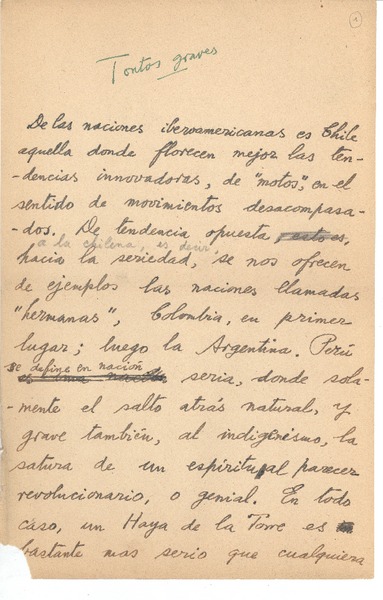 1
Tontos graves
De las naciones iberoamericanas es Chile
aquella donde florecen mejor las ten-
-dencias innovadoras, de "motos", en el
sentido de movimientos desacompasa-
dos. De tendencia opuesta, esto es,
a la chilena, es decir
hacia la seriedad, se nos ofrecen
de ejemplos las naciones llamadas
"hermanas", Colombia, en primer
lugar; luego la Argentina. Perú
se define en nación
es una nación seria, donde sola-
-mente el salto atrás natural, y
grave también, al indigenismo, la
satura de un espiritual parecer
revolucionario, o genial. En todo
caso, un Haya de la Torre es
bastante mas serio que cualquiera